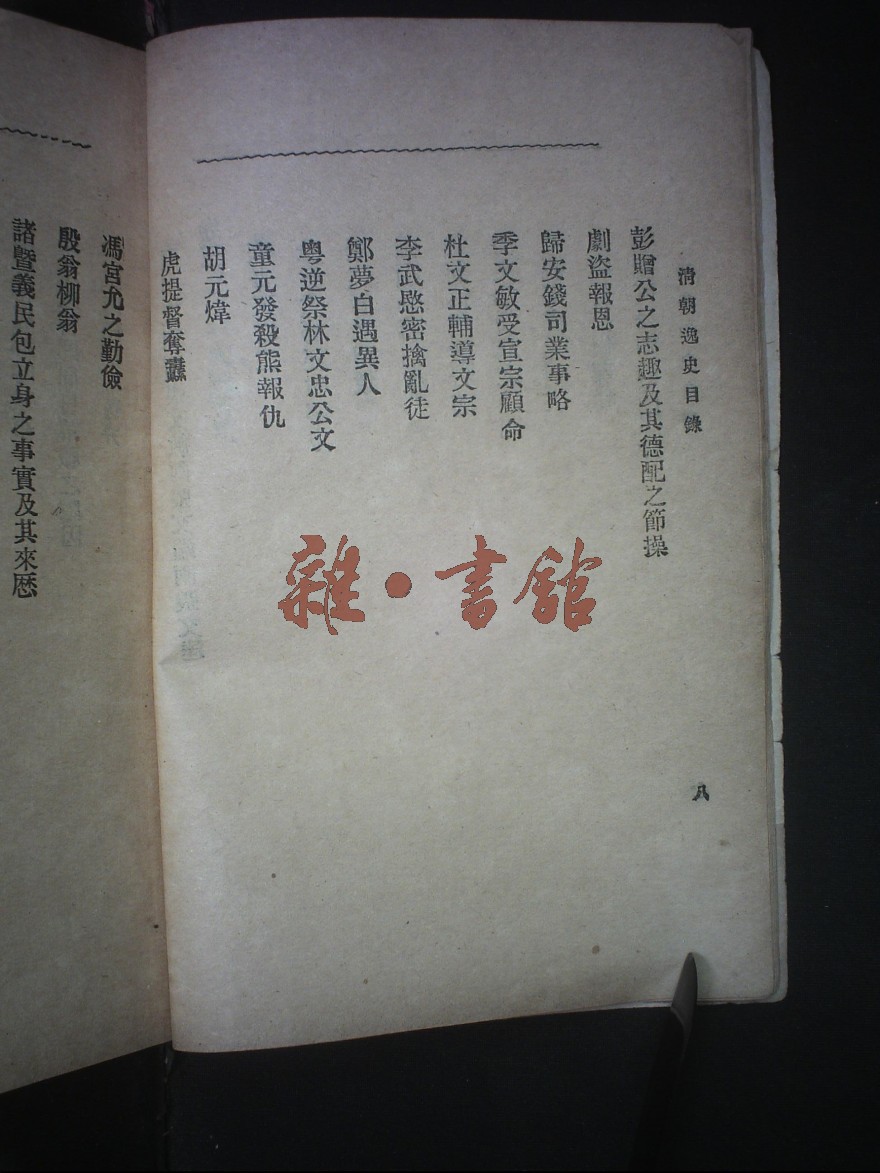 清朝逸史目錄
彭贈公之志趣及其德配之節操
劇盜報恩
歸安錢司業事略
季文敏受宣宗顧命
杜文正輔導文宗
李武愍密擒亂徒
鄭夢白遇異人
粵逆祭林文忠公文
童元發殺熊報仇
胡元煒
虎提督奪纛
八
馮宮允之勤儉
殷翁柳翁
諸暨義民包立身之事實及其來歷
雜·書館